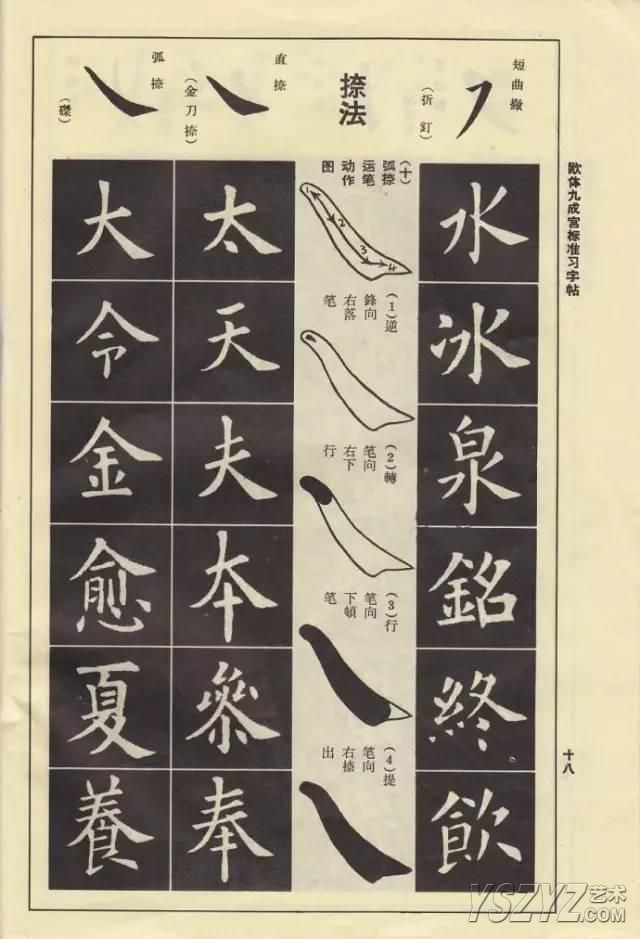 欧体九成宫标准习字帖
十八
短曲撇
（折釘）
水
冰
泉
銘
終
飲
捺法
（十）
弧捺
运笔
动作
图
1
2
3
4
（1）逆
鋒向
右落
笔
（2）轉
笔向
右下
行
（3）行
笔向
下頓
笔
（4）提
笔向
右捺
出
直捺
（金刀捺）
太
天
夫
本
叅
奉
弧捺
（磔）
大
令
金
愈
夏
養
YSZYZ艺术
.COM